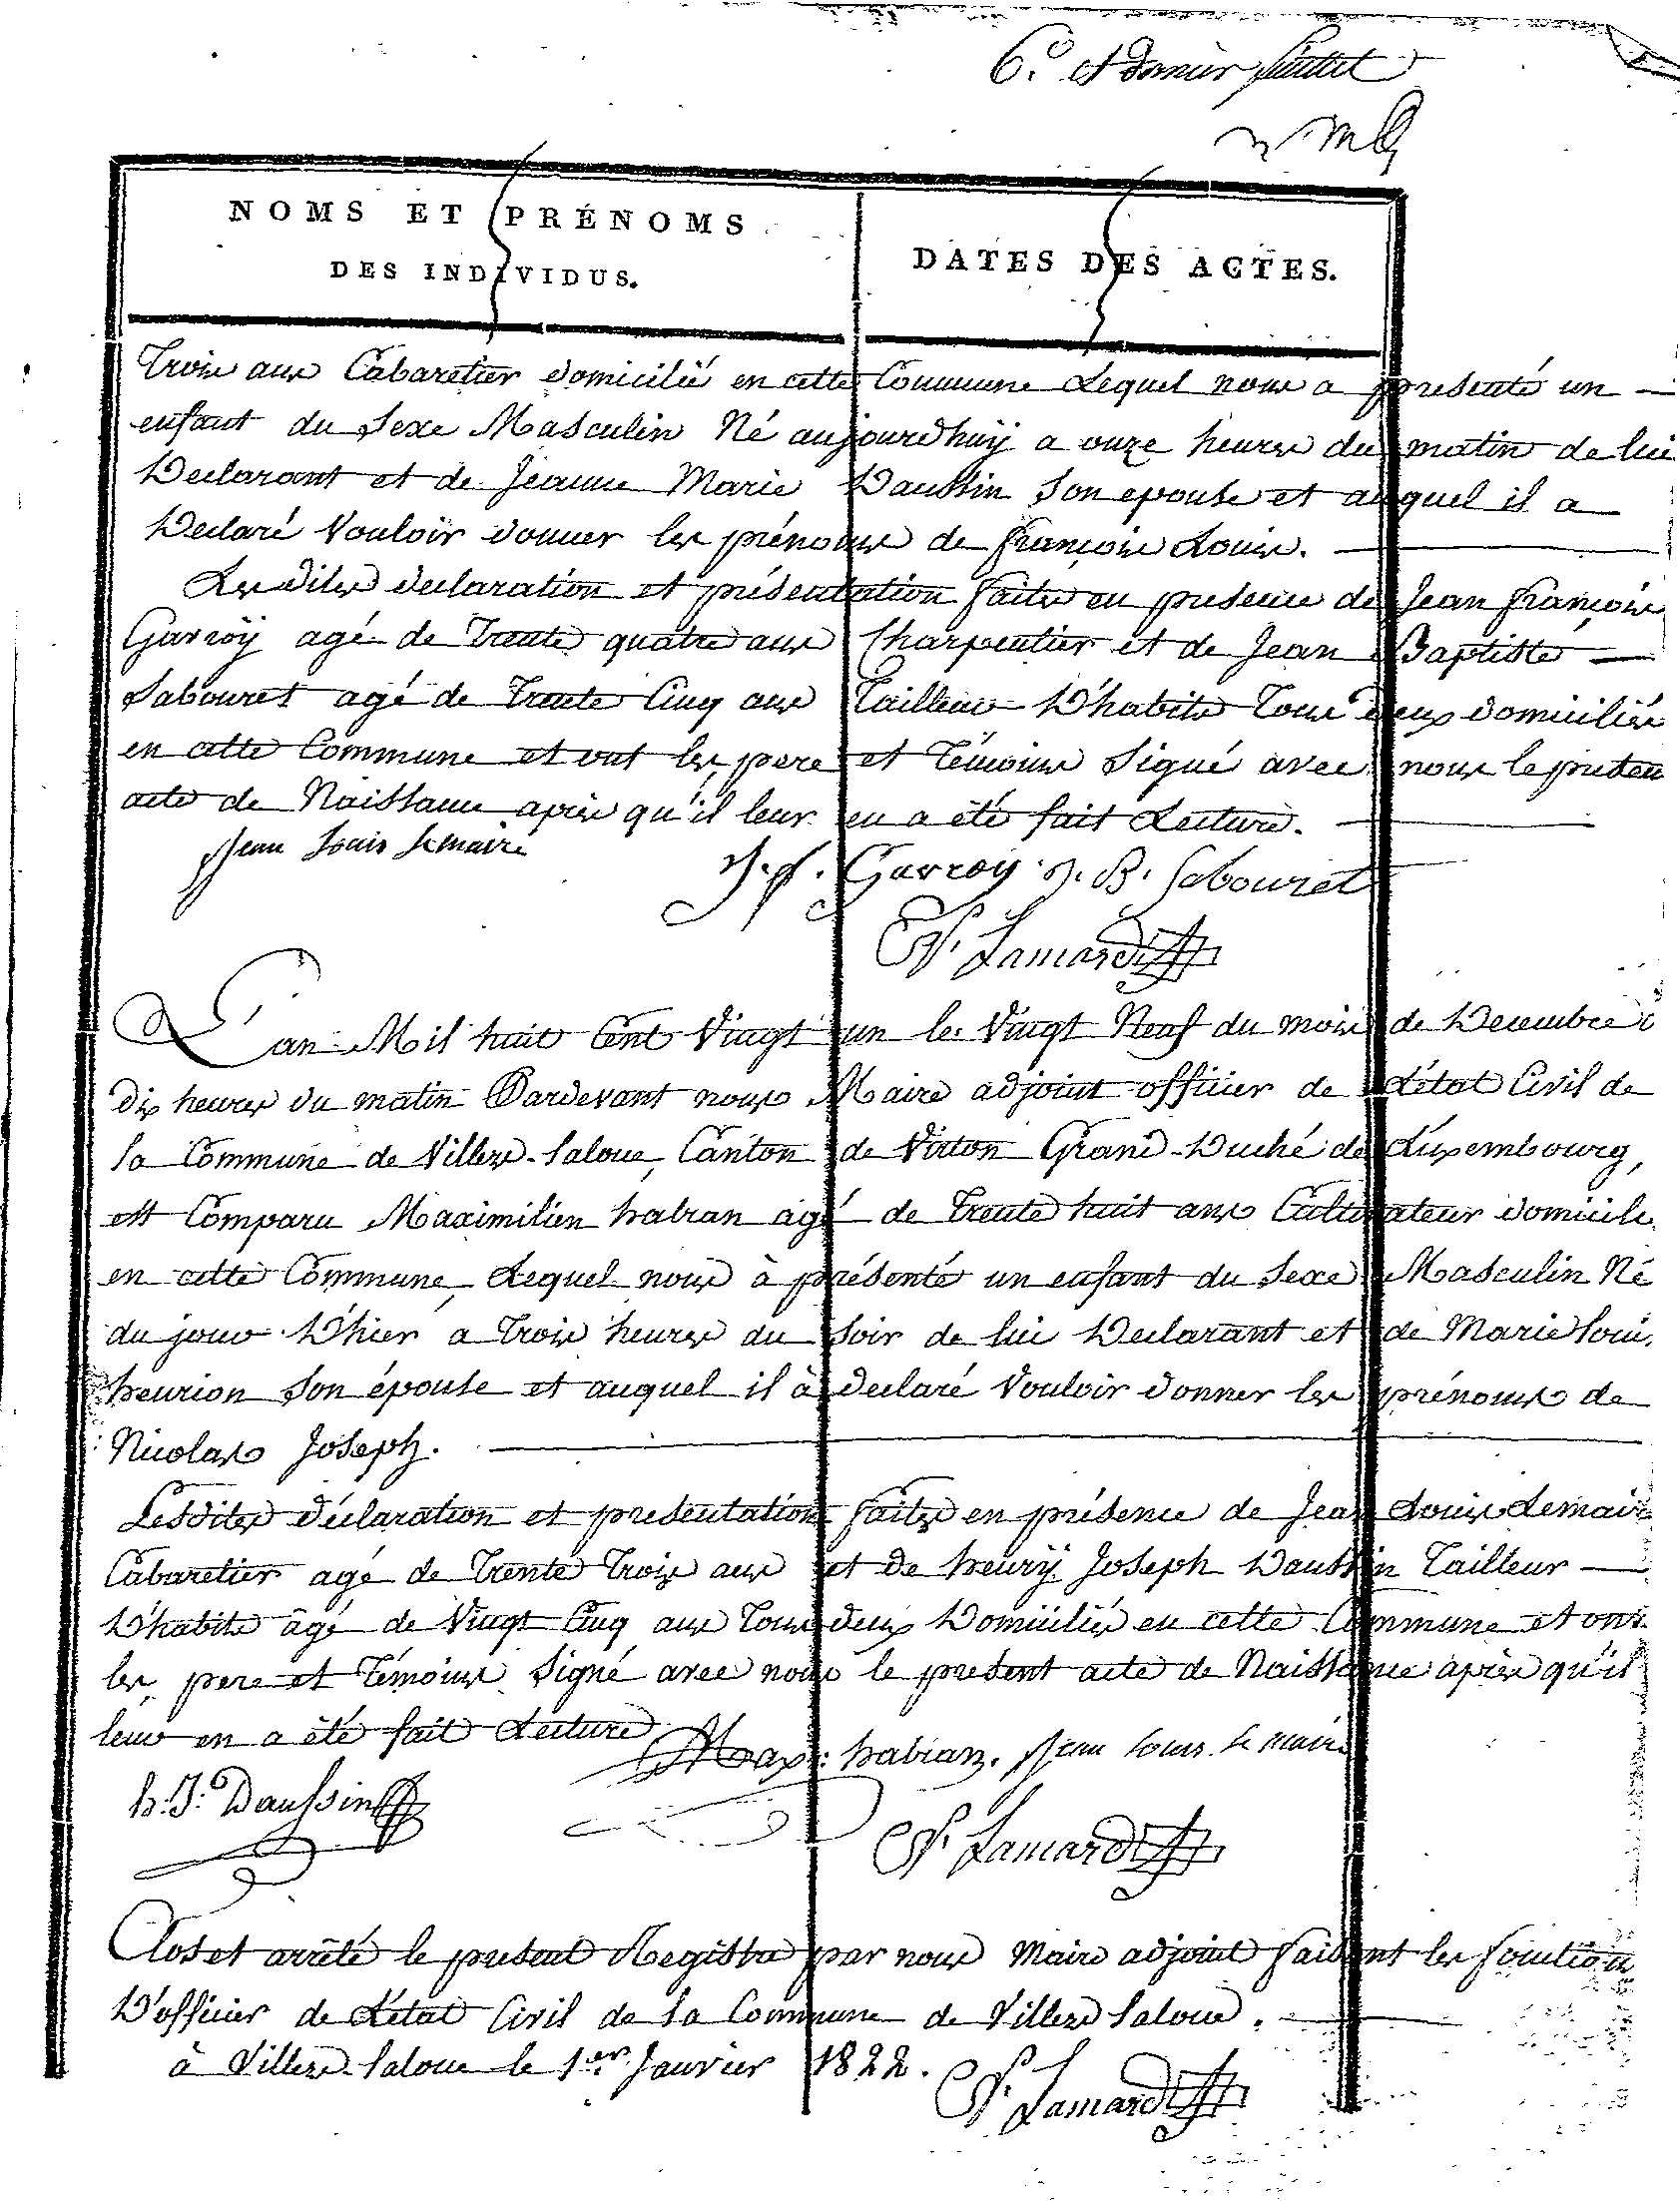 6.e et dernier feuillet
NOMS ET PRÉNOMS
DES INDIVIDUS.
DATES DES ACTES.
Trois ans Cabaretier domicilié en cette Commune Lequel nous a presenté un —
enfant du Sexe Masculin Né aujourdhuÿ a onze heures du matin de lui
Declarant et de Jeanne Marie Daussin Son epouse et auquel il a
Declaré Vouloir donner les prénoms de françois Louis. —
Les dites declaration et présentation faites en presence de Jean françois
Garroÿ agé de Trente quatre ans Charpentier et de Jean Baptiste —
Sabouret agé de Trente Cinq ans Tailleur D'habits Tous deux domiciliés
en cette Commune et ont les pere et Témoins Signé avec nous le presen
acte de Naissance après qu'il leur en a été fait Lecture. —
Jean Louis Lemaire
J. f. Garroy J. B. Sabouret
Lamard
L'an Mil huit Cent Vingt un le Vingt Neuf du mois de Decembre
dix heures du matin Pardevant nous Maire adjoint officier de L'état Civil de
la Commune de Villers-Laloue, Canton de Virton Grand-Duché de Luxembourg,
est Comparu Maximilien habran agé de Trente huit ans Cultivateur domicile
en cette Commune, Lequel nous à présenté un enfant du Sexe Masculin Né
du jour D'hier a Trois heures du Soir de lui Declarant et de Marie Loui
henrion Son épouse et auquel il à declaré Vouloir donner les prénoms de
Nicolas Joseph. —
Lesdites déclaration et presentation faites en présence de Jean Louis Lemaire
Cabaretier agé de Trente Trois ans et de henrÿ Joseph Daussin Tailleur —
D'habits âgé de Vingt Cinq ans Tous deux Domiciliés en cette Commune et ont
les pere et Témoins Signé avec nous le present acte de Naissance après qu'il
leur en a été fait Lecture
Max: habran. Jean Louis Le maire
h: J: Daussin
Lamard
Clos et arrêté le present Registre par nous Maire adjoint faisant les fonction
D'officier de L'état Civil de la Commune de Villers Laloue. —
à Villers-Laloue le 1er Janvier 1822.
Lamard